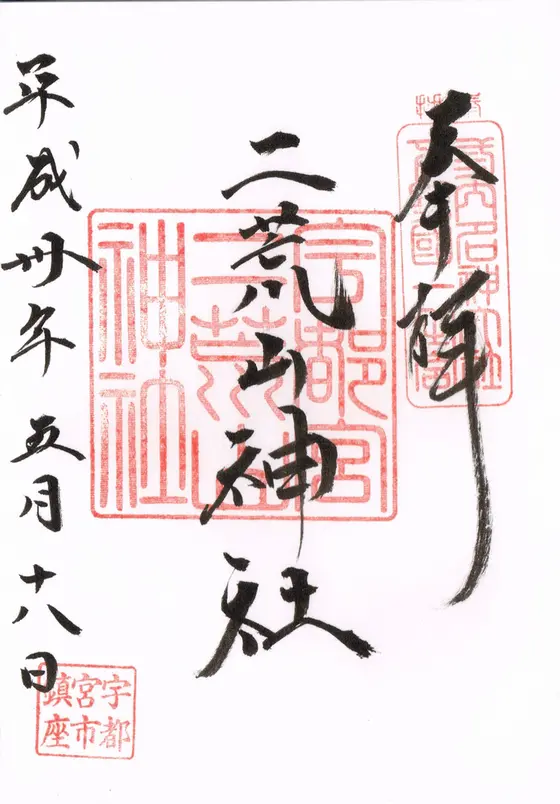 奉拝
二荒山神社
平成卅年五月十八日
宇都宮二荒山神社
宇都
宮市
鎮座